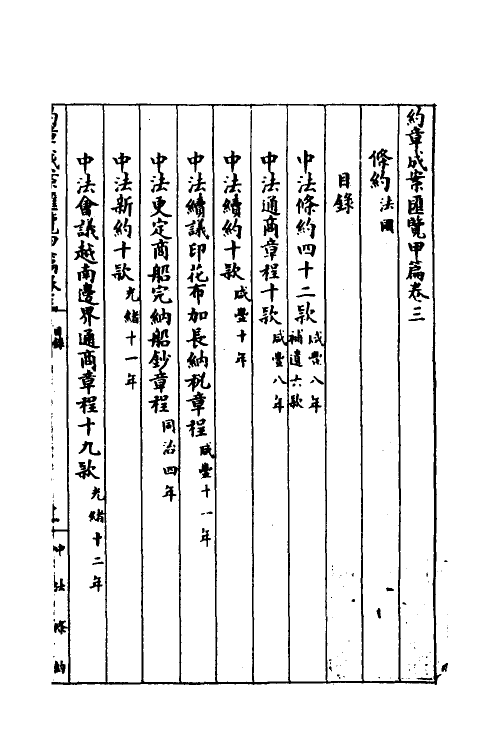 約章成案匯覽甲篇卷三
條約 法國
目錄
中法條約四十二款 咸豐八年 補遺六款
中法通商章程十款 咸豐八年
中法續約十款 咸豐十年
中法續議印花布加長納稅章程 咸豐十一年
中法更定商船完納船鈔章程 同治四年
中法新約十款 光緒十一年
中法會議越南邊界通商章程十九款 光緒十二年
約章成案匯覽甲篇卷三 目錄 中法條約